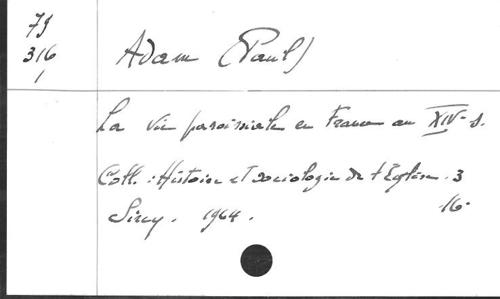 75
316
1
Adam (Paul)
La vie paroissiale en France au XIVe s.
Coll. : Histoire et sociologie de l'Église. 3
Sirey. 1964. 16.